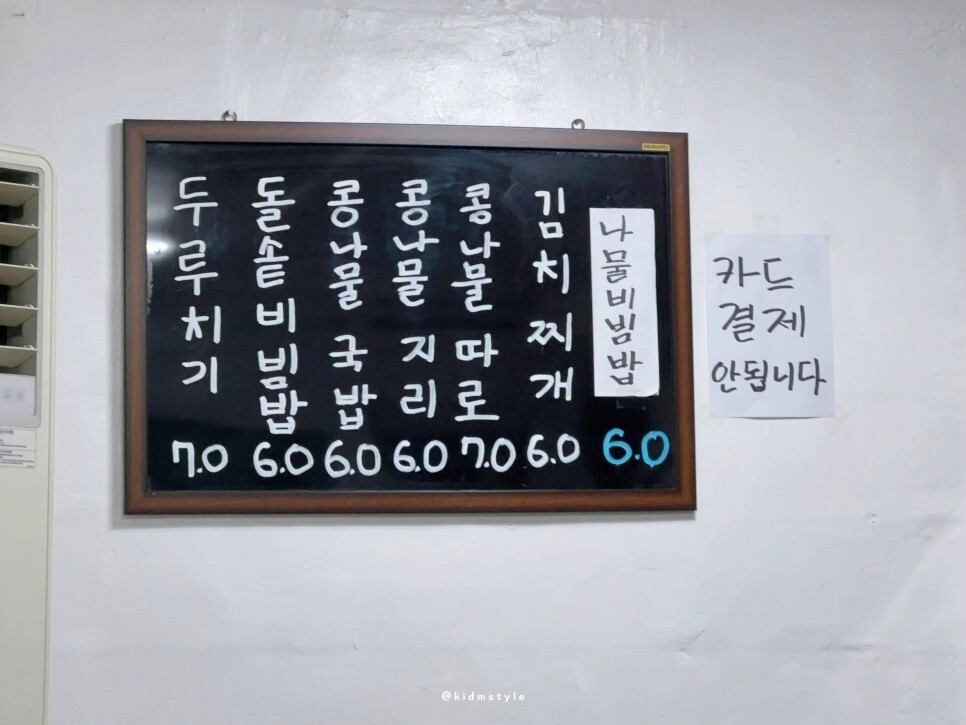 두루치기 7.0
돌솥비빔밥 6.0
콩나물국밥 6.0
콩나물지리 6.0
콩나물따로 7.0
김치찌개 6.0
나물비빔밥 6.0
카드
결제
안됩니다
@kidmstyle